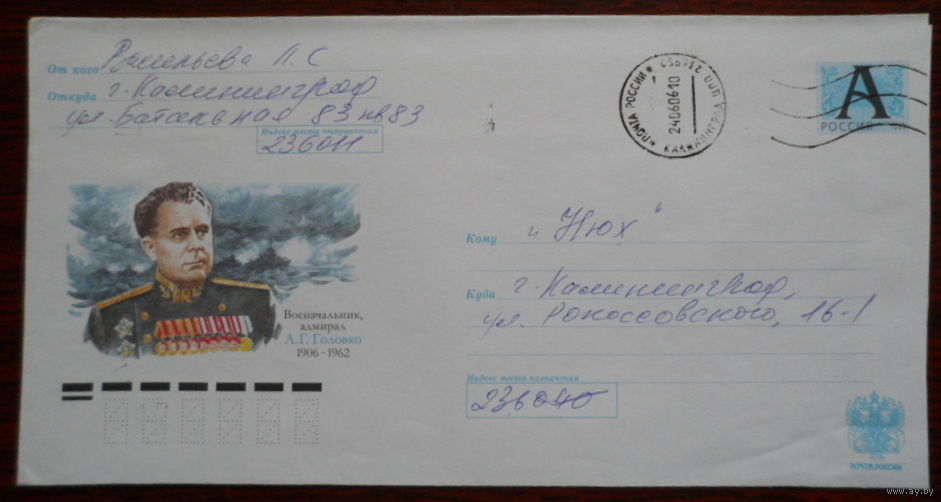 От кого Васильева Л.С
Откуда г. Калининград
ул. Батальная 83 кв 83
Индекс места отправления
236011
ПОЧТА РОССИИ
24060610
КАЛИНИНГРАД
А
РОССИЯ
Военачальник,
адмирал
А.Г. Головко
1906–1962
Кому „Нюх“
Куда г. Калининград,
ул. Рокоссовского, 16-1
Индекс места назначения
236040
ПОЧТА РОССИИ
www.ay.by